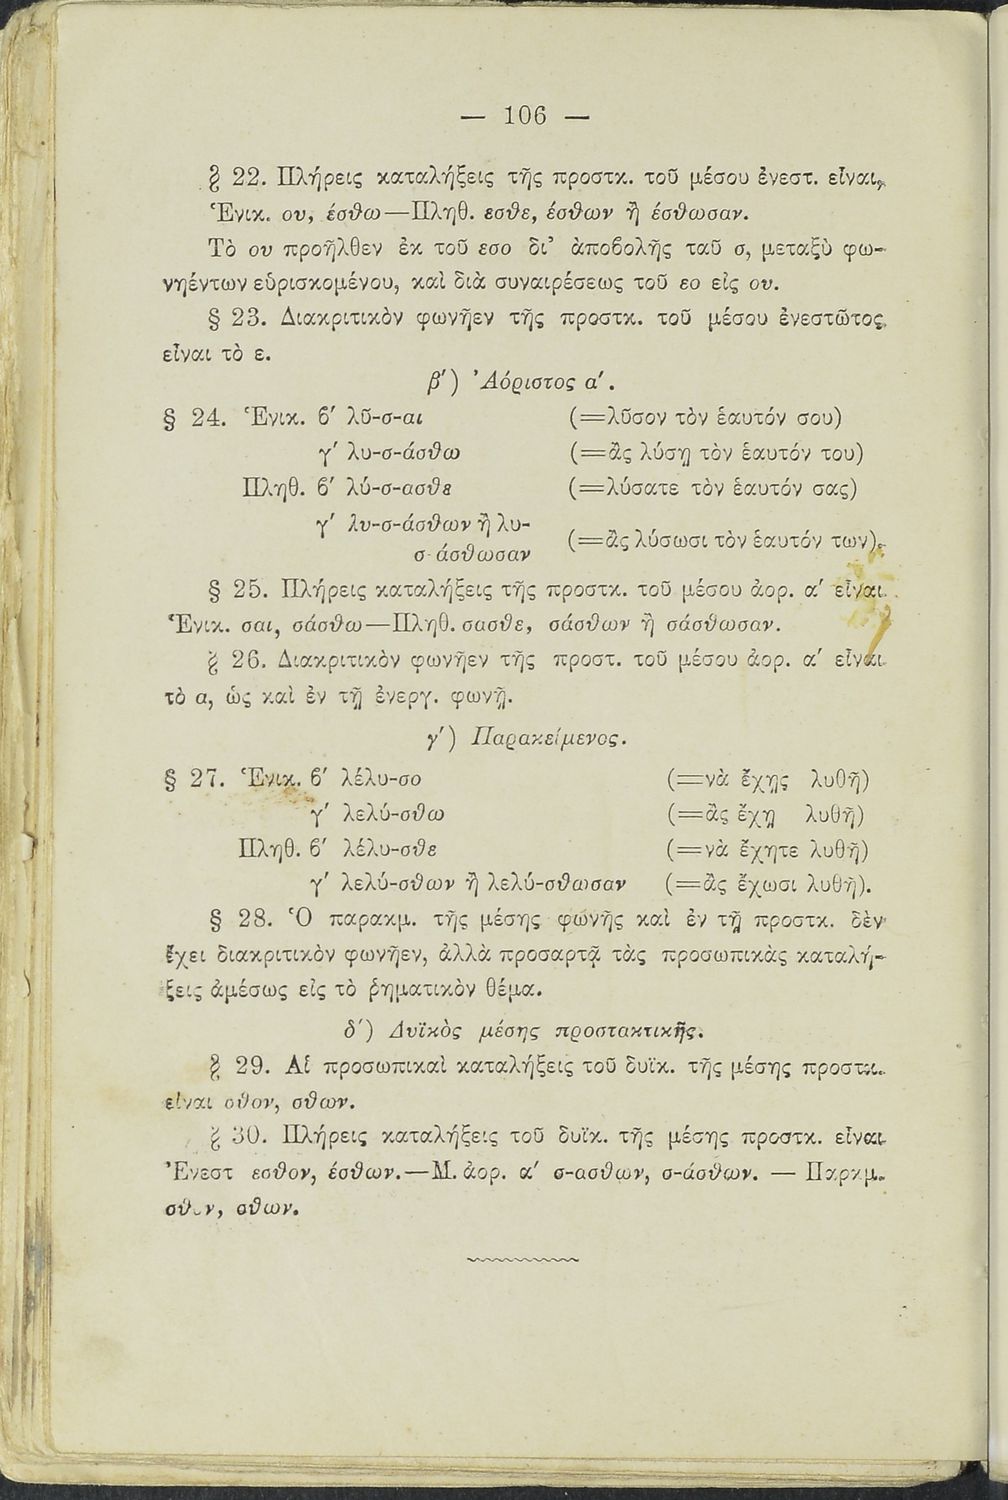 — 106 —
§ 22. Πλήρεις καταλήξεις τῆς προστκ. τοῦ μέσου ἐνεστ. εἶναι,
Ἑνικ. ου, έσθω—Πληθ. εσθε, έσθων ἢ έσθωσαν.
Τὸ ου προῆλθεν ἐκ τοῦ εσο δι’ ἀποβολῆς ταῦ σ, μεταξὺ φω-
νηέντων εὑρισκομένου, καὶ διὰ συναιρέσεως τοῦ εο εἰς ου.
§ 23. Διακριτικὸν φωνῆεν τῆς προστκ. τοῦ μέσου ἐνεστῶτος
εἶναι τὸ ε.
β′) Ἀόριστος α′.
§ 24. Ἑνικ. β′ λῦ-σ-αι (=λῦσον τὸν ἑαυτόν σου)
γ′ λυ-σ-άσθω (=ἂς λύσῃ τὸν ἑαυτόν του)
Πληθ. β′ λύ-σ-ασθε (=λύσατε τὸν ἑαυτόν σας)
γ′ λυ-σ-άσθων ἢ λυ-
σ-άσθωσαν (=ἂς λύσωσι τὸν ἑαυτόν των).
§ 25. Πλήρεις καταλήξεις τῆς προστκ. τοῦ μέσου ἀορ. α′ εἶναι
Ἑνικ. σαι, σάσθω—Πληθ. σασθε, σάσθων ἢ σάσθωσαν.
§ 26. Διακριτικὸν φωνῆεν τῆς προστ. τοῦ μέσου ἀορ. α′ εἶναι
τὸ α, ὡς καὶ ἐν τῇ ἐνεργ. φωνῇ.
γ′) Παρακείμενος.
§ 27. Ἑνικ. β′ λέλυ-σο (=νὰ ἔχῃς λυθῆ)
γ′ λελύ-σθω (=ἂς ἔχῃ λυθῆ)
Πληθ. β′ λέλυ-σθε (=νὰ ἔχητε λυθῆ)
γ′ λελύ-σθων ἢ λελύ-σθωσαν (=ἂς ἔχωσι λυθῆ).
§ 28. Ὁ παρακμ. τῆς μέσης φωνῆς καὶ ἐν τῇ προστκ. δὲν
ἔχει διακριτικὸν φωνῆεν, ἀλλὰ προσαρτᾷ τὰς προσωπικὰς καταλή-
ξεις ἀμέσως εἰς τὸ ῥηματικὸν θέμα.
δ′) Δυϊκὸς μέσης προστακτικῆς.
§ 29. Αἱ προσωπικαὶ καταλήξεις τοῦ δυϊκ. τῆς μέσης προστκ.
εἶναι σθον, σθων.
§ 30. Πλήρεις καταλήξεις τοῦ δυϊκ. τῆς μέσης προστκ. εἶναι
Ἐνεστ εσθον, έσθων.—Μ. ἀορ. α′ σ-ασθων, σ-άσθων. — Παρκμ.
σθον, σθων.